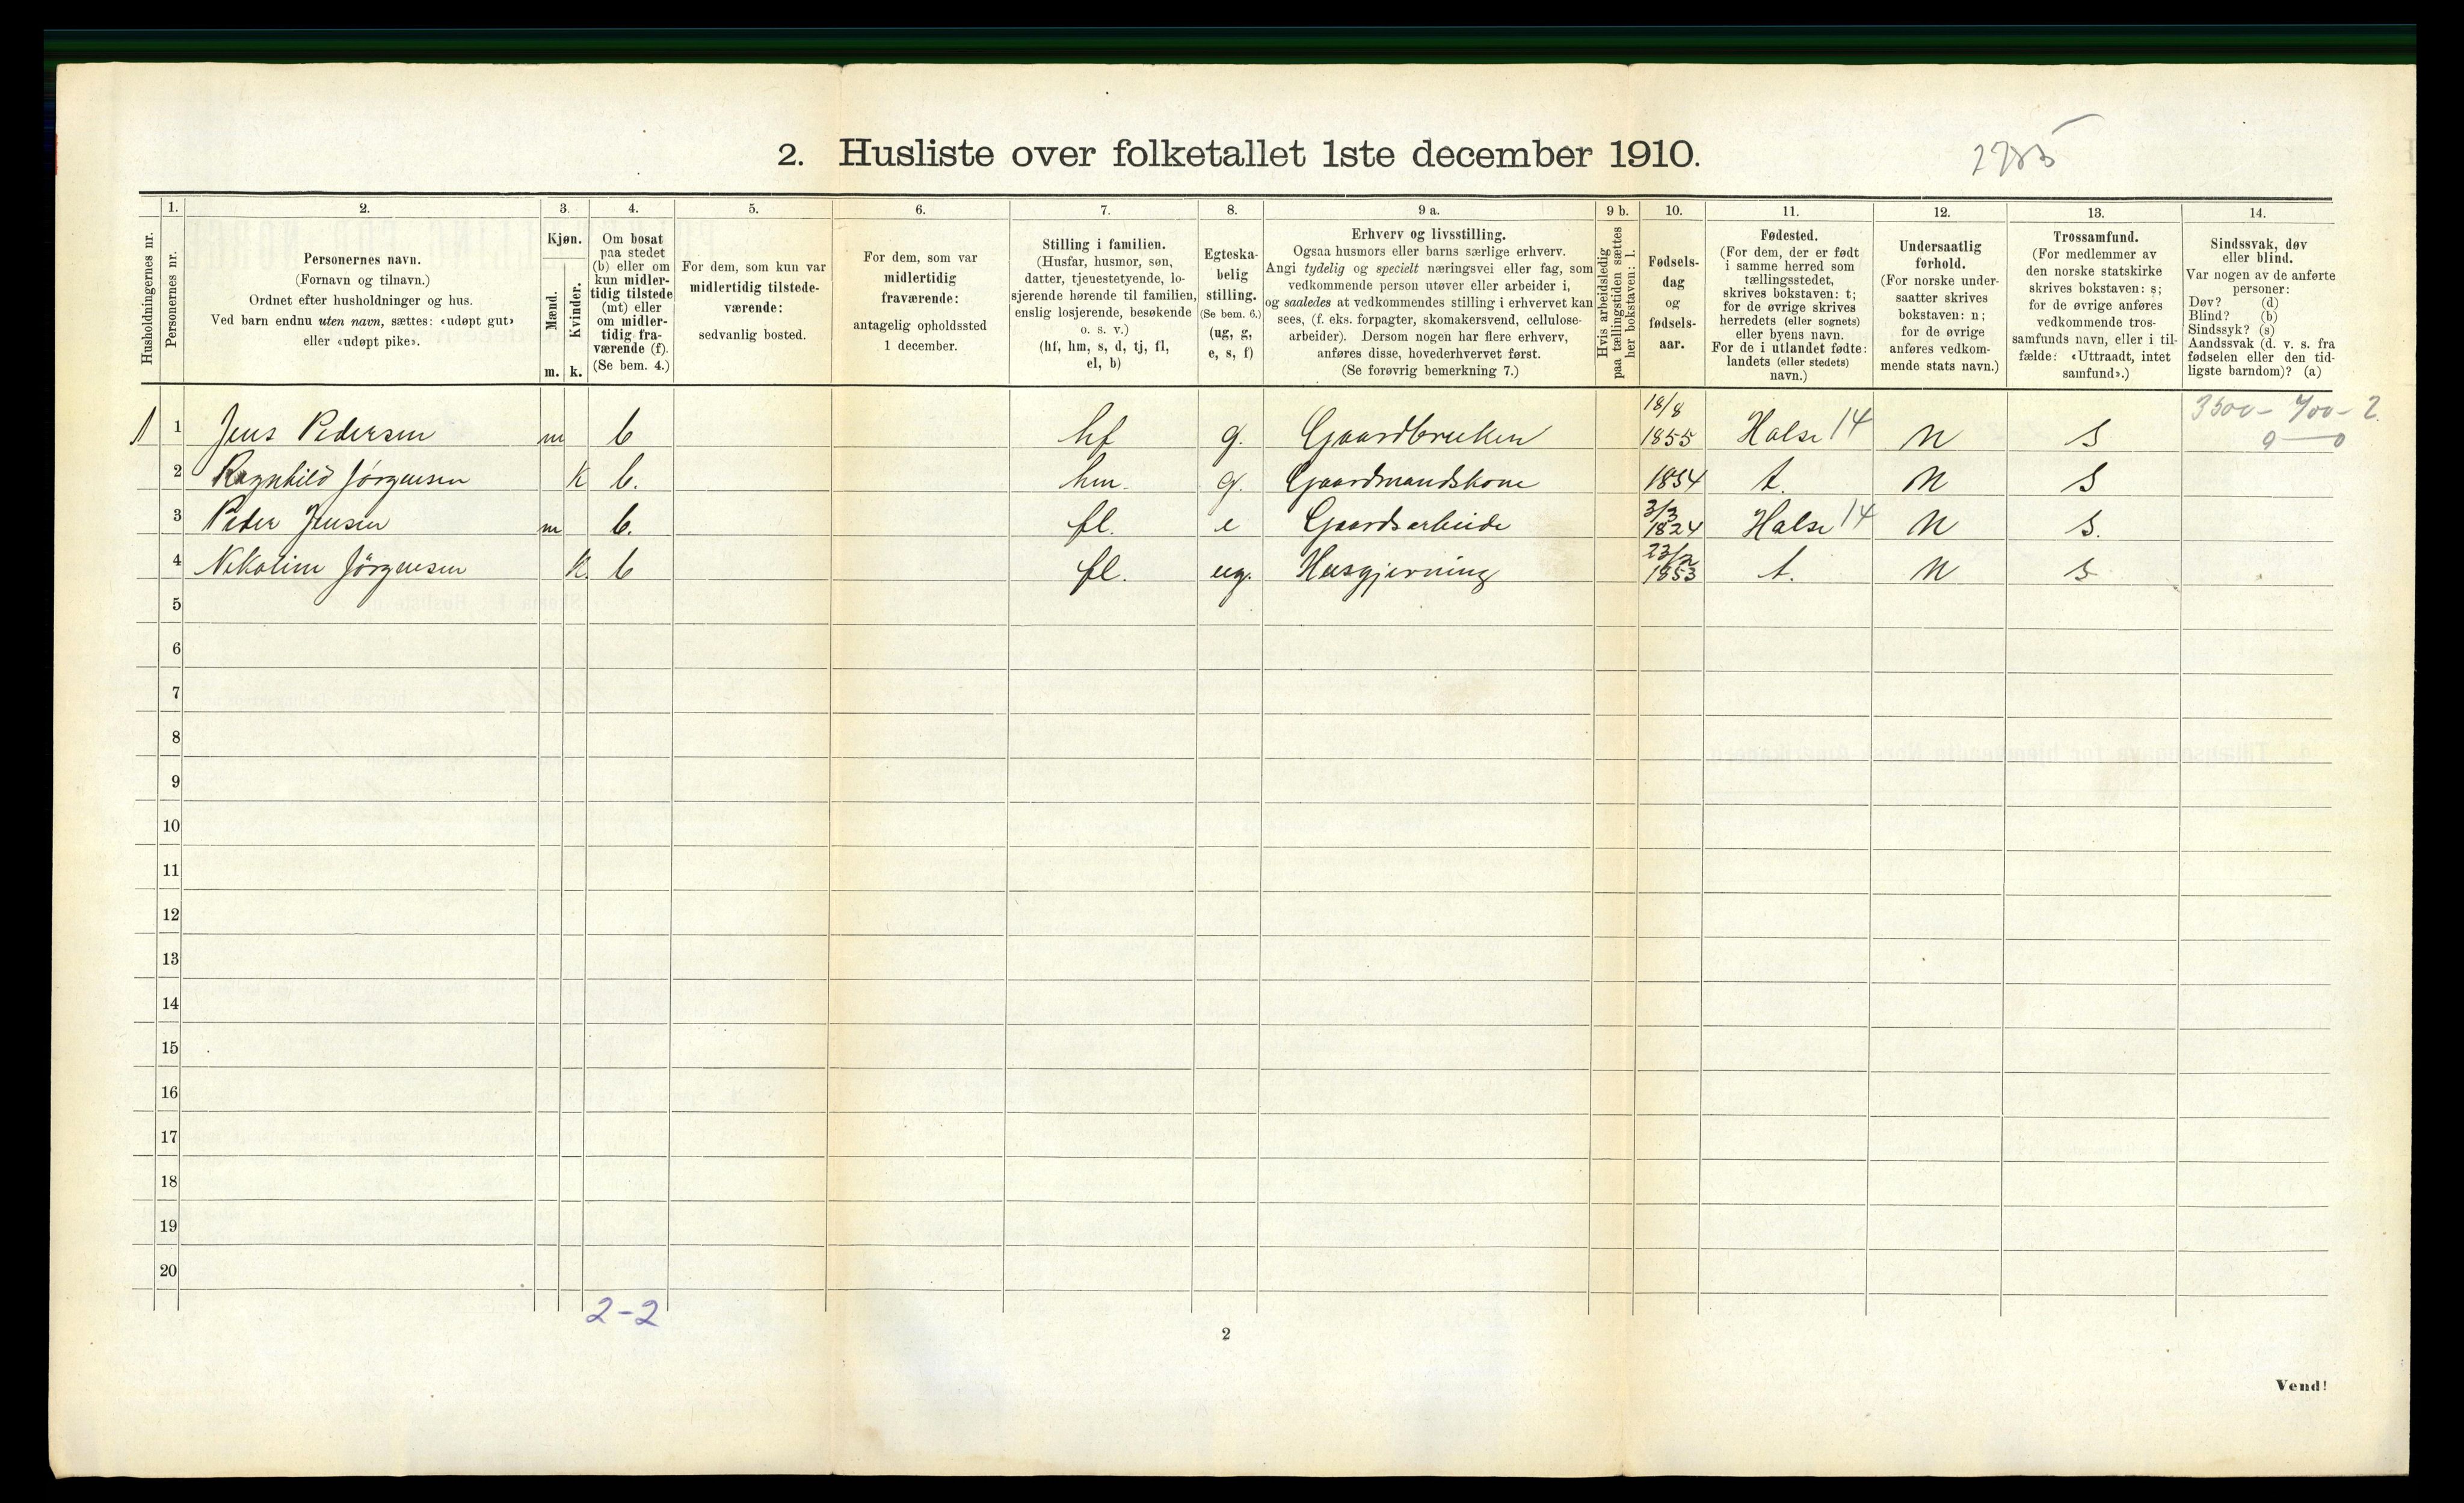 2. Husliste over folketallet 1ste december 1910.
1. 2. 3. 4. 5. 6. 7. 8. 9 a. 9 b. 10. 11. 12. 13. 14.
Husholdningernes nr.
Personernes nr.
Personernes navn.
(Fornavn og tilnavn.)
Ordnet efter husholdninger og hus.
Ved barn endnu uten navn, sættes: «udøpt gut»
eller «udøpt pike».
Kjøn.
Mænd.
Kvinder.
m. k.
Om bosat
paa stedet
(b) eller om
kun midler-
tidig tilstede
(mt) eller
om midler-
tidig fra-
værende (f).
(Se bem. 4.)
For dem, som kun var
midlertidig tilstede-
værende:
sedvanlig bosted.
For dem, som var
midlertidig
fraværende:
antagelig opholdssted
1 december.
Stilling i familien.
(Husfar, husmor, søn,
datter, tjenestetyende, lo-
sjerende hørende til familien,
enslig losjerende, besøkende
o. s. v.)
(hf, hm, s, d, tj, fl,
el, b)
Egteska-
belig
stilling.
(Se bem. 6.)
(ug, g,
e, s, f)
Erhverv og livsstilling.
Ogsaa husmors eller barns særlige erhverv.
Angi tydelig og specielt næringsvei eller fag, som
vedkommende person utøver eller arbeider i,
og saaledes at vedkommendes stilling i erhvervet kan
sees, (f. eks. forpagter, skomakersvend, cellulose-
arbeider). Dersom nogen har flere erhverv,
anføres disse, hovederhvervet først.
(Se forøvrig bemerkning 7.)
Hvis arbeidsledig
paa tællingstiden sættes
her bokstaven: l.
Fødsels-
dag
og
fødsels-
aar.
Fødested.
(For dem, der er født
i samme herred som
tællingsstedet,
skrives bokstaven: t;
for de øvrige skrives
herredets (eller sognets)
eller byens navn.
For de i utlandet fødte:
landets (eller stedets)
navn.)
Undersaatlig
forhold.
(For norske under-
saatter skrives
bokstaven: n;
for de øvrige
anføres vedkom-
mende stats navn.)
Trossamfund.
(For medlemmer av
den norske statskirke
skrives bokstaven: s;
for de øvrige anføres
vedkommende tros-
samfunds navn, eller i til-
fælde: «Uttraadt, intet
samfund».)
Sindssvak, døv
eller blind.
Var nogen av de anførte
personer:
Døv? (d)
Blind? (b)
Sindssyk? (s)
Aandssvak (d. v. s. fra
fødselen eller den tid-
ligste barndom)? (a)
3500 - 700 - 2
0 — 0
1 1 Jens Pedersen m b hf g. Gaardbruken 18/8 1855 Halse 14 n s
2 Ragnhild Jörgensen k b. hm. g. Gaardmandskone 1854 t. n s
3 Peder Jensen m b. fl. e Gaardsarbeide 3/3 1824 Halse 14 n s.
4 Nikoline Jörgensen k. b fl. ug. Husgjerning 1853 t. n s
5
6
7
8
9
10
11
12
13
14
15
16
17
18
19
20
2-2
2
Vend!